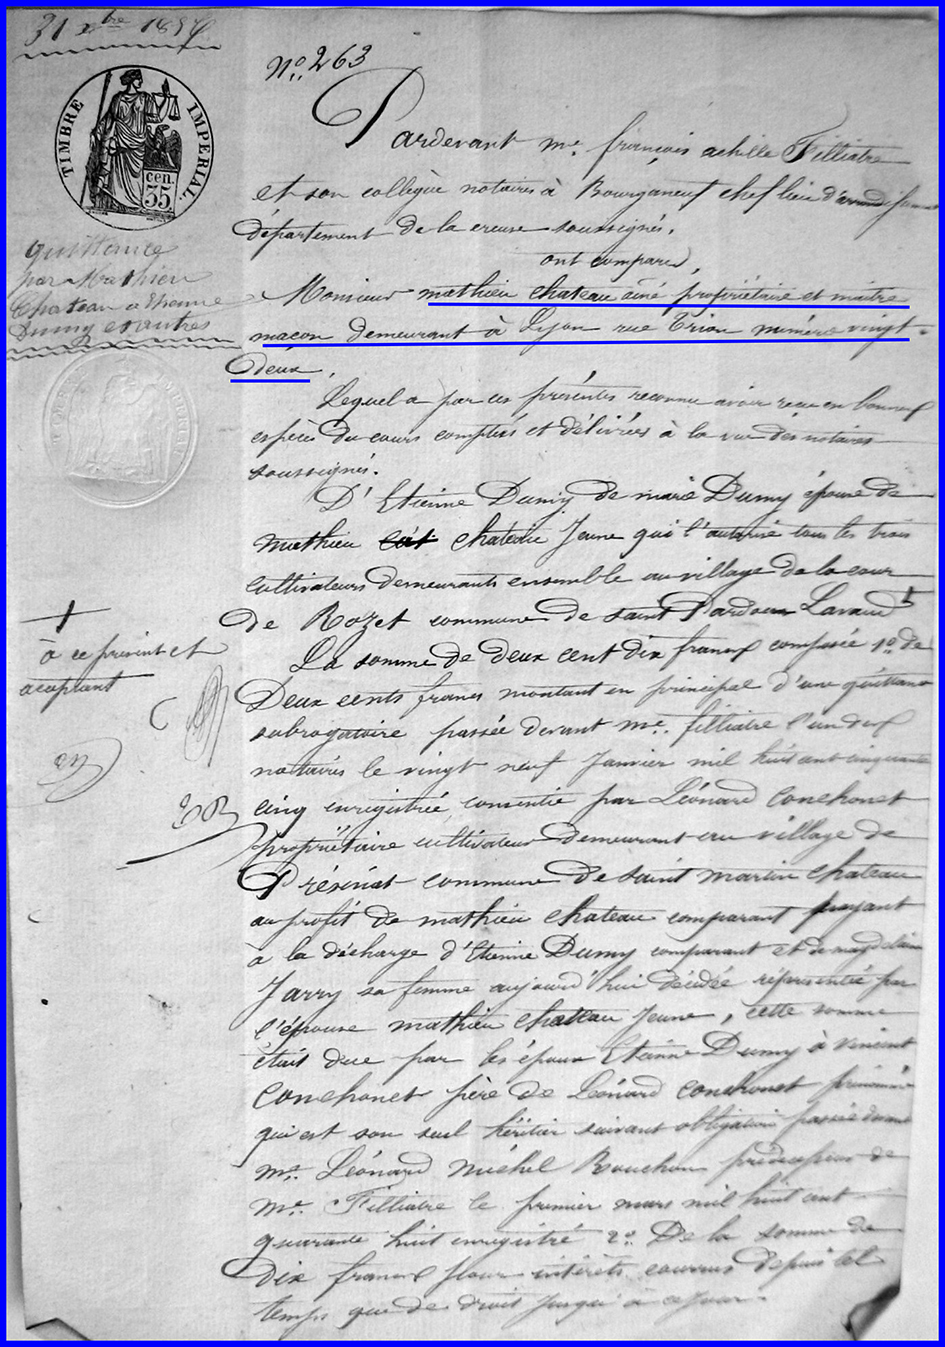 31 xbre 185
No. 263
TIMBRE IMPERIAL
cen. 35
Pardevant me. françois achille Filliatre
et son collègue notaires à Bourganeuf chef lieu d'arrondissement
département de la creuse soussignés,
ont comparu,
Quittance
par Mathieu
Chateau a Etienne
Dumy et autres
Monsieur mathieu chateau ainé propriétaire et maitre
maçon demeurant à Lyon rue Trion numéro vingt
deux,
Lequel a par ces présentes reconnu avoir reçu en bonnes
espèces du cours comptées et délivrées à la vue des notaires
soussignés.
D'Etienne Dumy de marie Dumy épouse de
mathieu chateau Jeune qui l'autorise tous les trois
cultivateurs demeurants ensemble au village de la cour
de Rozet commune de saint Pardoux Lavaud
à ce présent et
acceptant
La somme de deux cent dix francs composée 1o. de
Deux cents francs montant en principal d'une quittance
subrogatoire passée devant me. filliatre l'un des
notaires le vingt neuf Janvier mil huit cent cinquante
cinq enregistrée, consentie par Léonard Conchonet
propriétaire cultivateur demeurant au village de
commune de saint martin chateau
au profit de mathieu chateau comparant payant
à la décharge d'Etienne Dumy comparant et de magdelaine
Jarry sa femme aujourd'hui décédée réprésentée par
l'épouse mathieu chateau Jeune, cette somme
était due par les époux Etienne Dumy à vincent
Conchonet père de Léonard conchonet prénommé
qui est son seul héritier suivant obligation passée devant
me. Léonard michel Bouchon prédécesseur de
me. Filliatre le premier mars mil huit cent
quarante huit enregistré 2o. De la somme de
dix francs pour intérêts courrus depuis tel
temps que de droit jusqu'à ce jour.